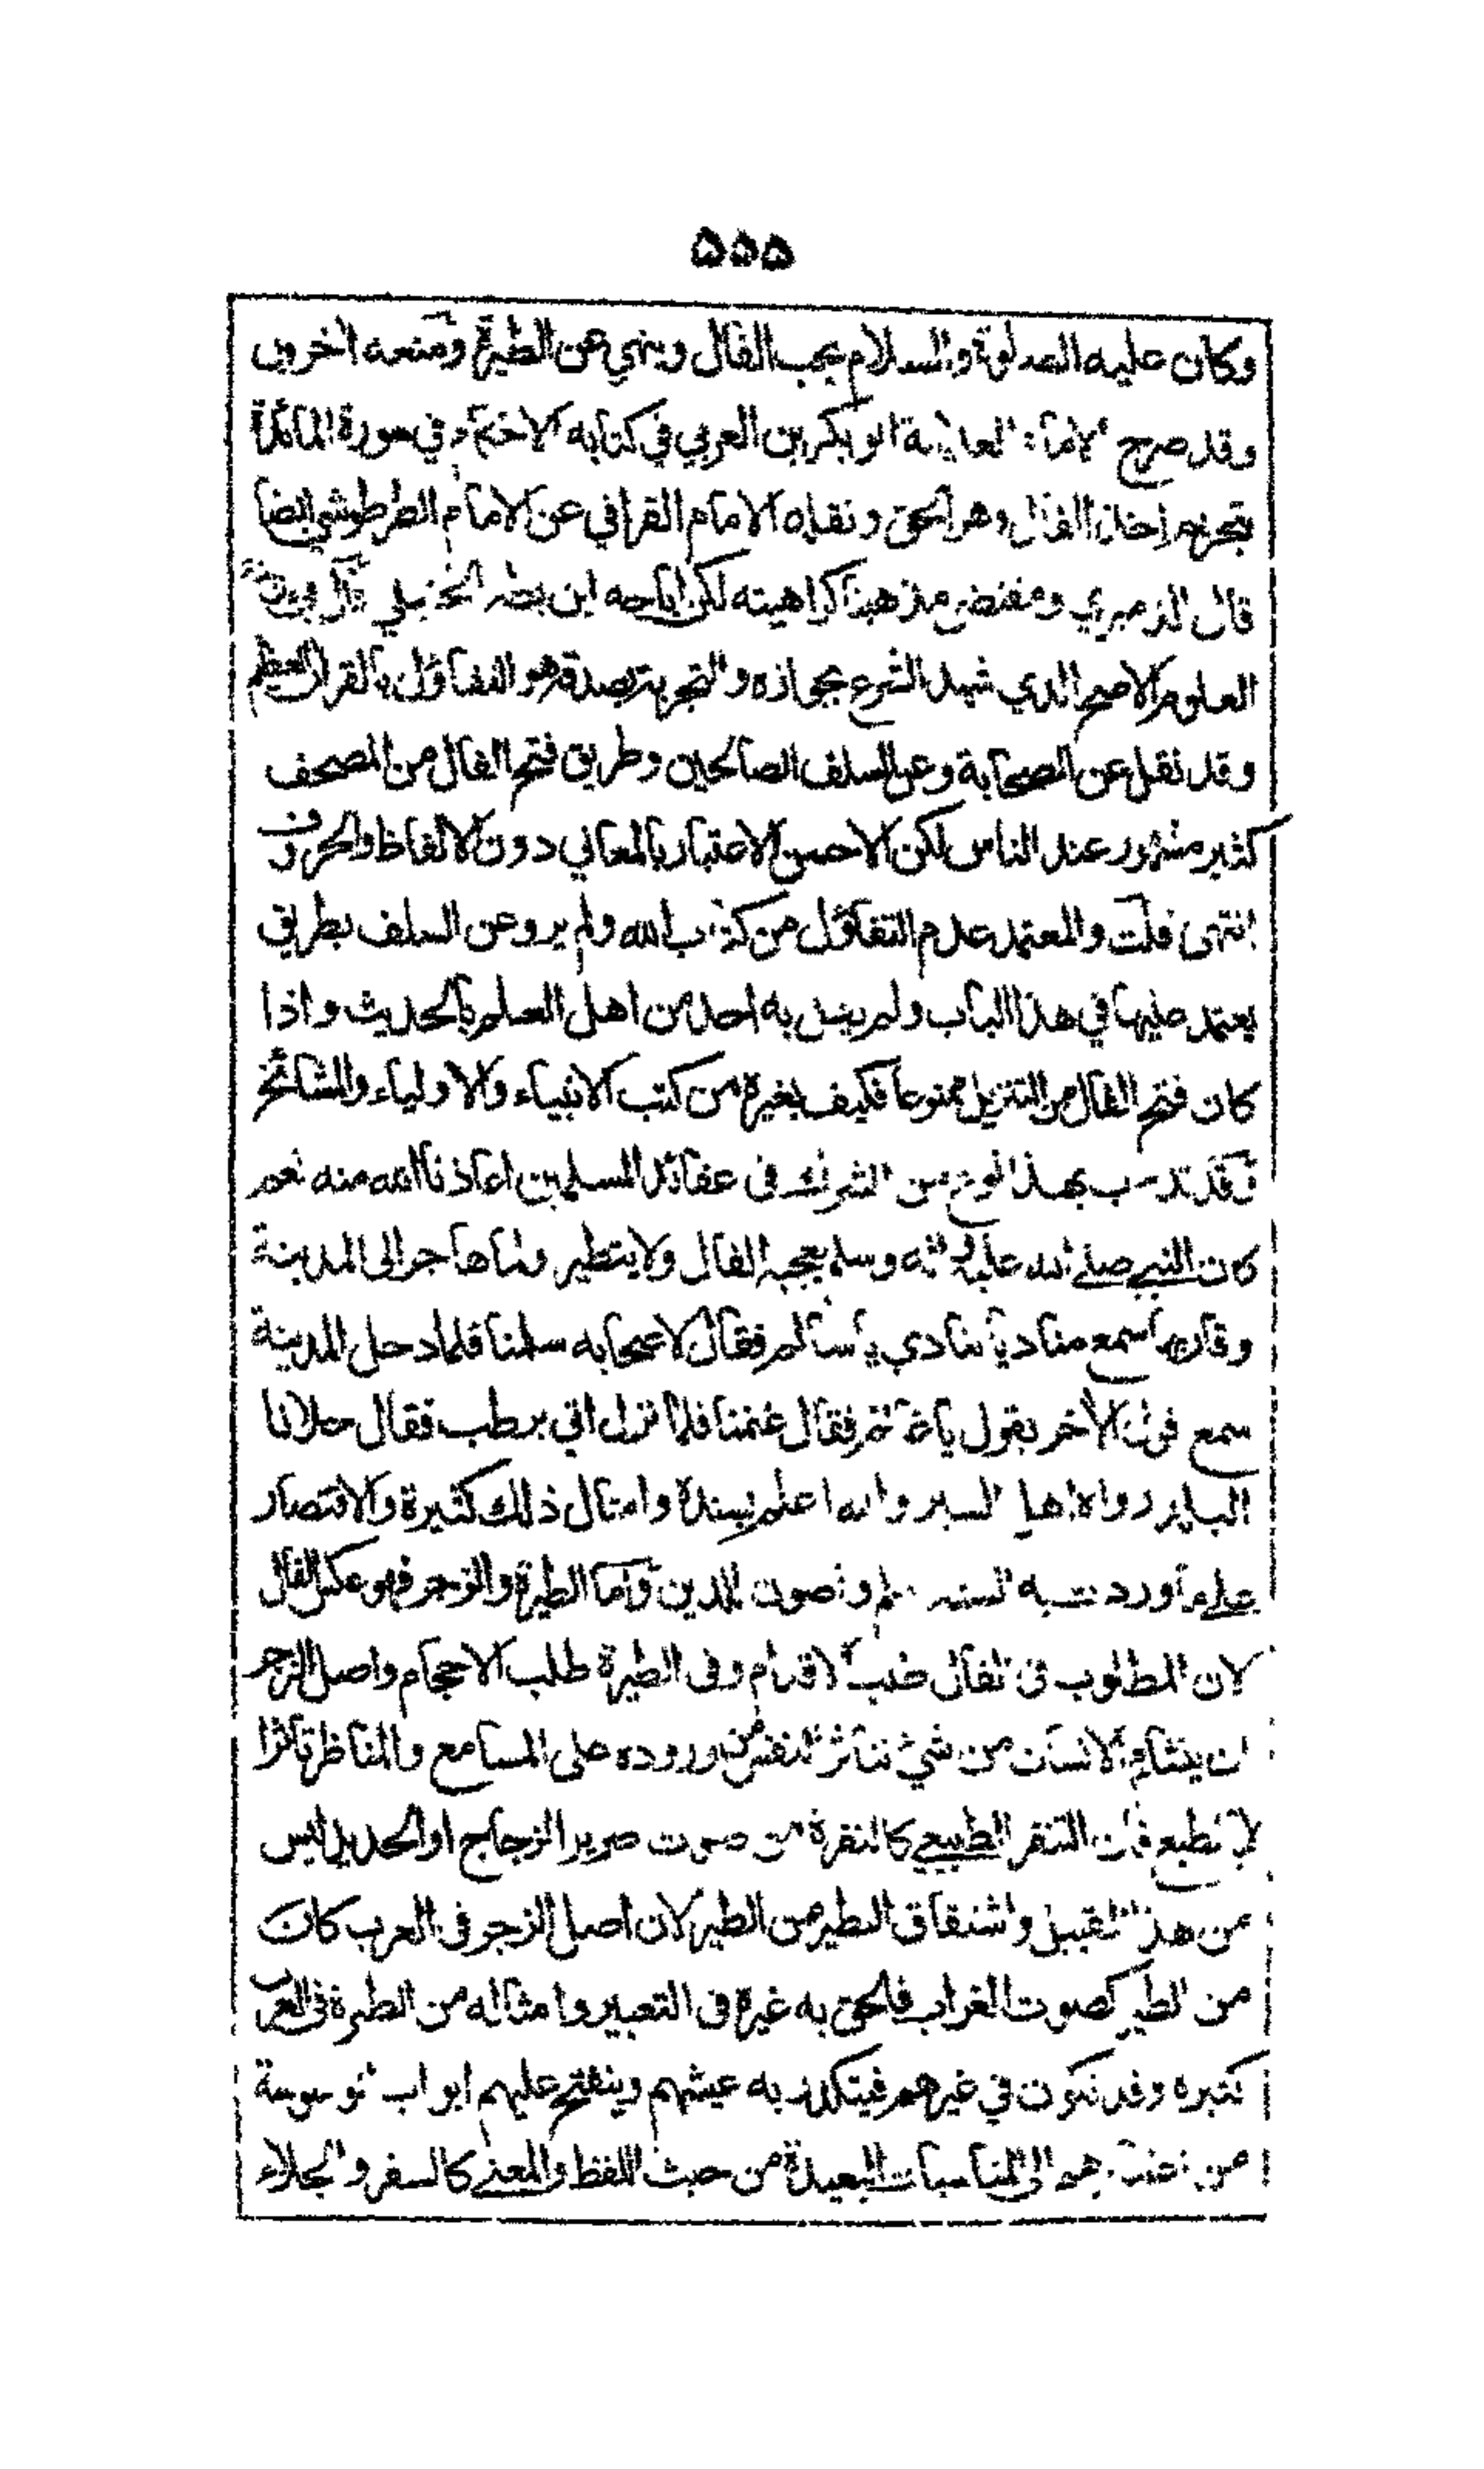 ۵۵۵
وكان عليه الصلوة والسلام يحب الفال وينهي عن الطيرة ومنعه اخرون
وقد صرح الامام العلامة ابو بكر بن العربي في كتابه الاحكام في سورة المائدة
بتحريم اخذ الفال وهو الحق ونقله الامام القرافي عن الامام الطرطوشي ايضا
قال الدميري ومقتضى مذهبنا كراهيته لكن اباحه ابن بطه الحنبلي قال في مدينة
العلوم الاصح الذي شهد الشرع بجوازه والتجربة بصدقه هو التفاؤل بالقران العظيم
وقد نقل عن الصحابة وعن السلف الصالحين وطريق فتح الفال من المصحف
كثير مشهور عند الناس لكن الاحسن الاعتبار بالمعاني دون الالفاظ والحروف
انتهى قلت والمعتمد عدم التفاؤل من كتاب الله ولم يرو عن السلف بطريق
يعتمد عليها في هذا الباب ولم يقل به احد من اهل العلم بالحديث واذا
كان فتح الفال من التنزيل ممنوعا فكيف بغيره من كتب الانبياء والاولياء والمشائخ
وقد تسرب بهذا نوع من الشرك فى عقائد المسلمين اعاذنا الله منه نعم
كان النبي صلے الله عليه وآله وسلم يعجبه الفال ولا يتطير ولما هاجر الى المدينة
وقاربها سمع مناديا ينادي يا سالم فقال لاصحابه سلمنا فلما دخل المدينة
سمع قول الآخر يقول يا غانم فقال غنمنا فلما نزل اتي برطب فقال حلا لنا
البلد رواه اهل السير والله اعلم بسنده وامثال ذلك كثيرة والاقتصار
علے ما وردت به السنة اسلم واصون للدين واما الطيرة والزجر فهو عكس الفال
لان المطلوب فى الفال طلب الاقدام وفى الطيرة طلب الاحجام واصل الزجر
ان يتشام الانسان من شيء تتاثر النفس من وروده على المسامع والمناظر تاثرا
لا بالطبع فان التنفر الطبيعي كالنفرة من صوت صرير الزجاج او الحديد ليس
من هذا القبيل واشتقاق التطير من الطير لان اصل الزجر فى العرب كان
من الطير كصوت الغراب فالحق به غيره فى التعبير وامثاله من الطيرة فى العرب
كثيرة وقد تكون في غيرهم فيتكدر به عيشهم وينفتح عليهم ابواب الوسوسة
من اعتنائهم الى المناسبات البعيدة من حيث اللفظ والمعنے كالسفر والجلاء